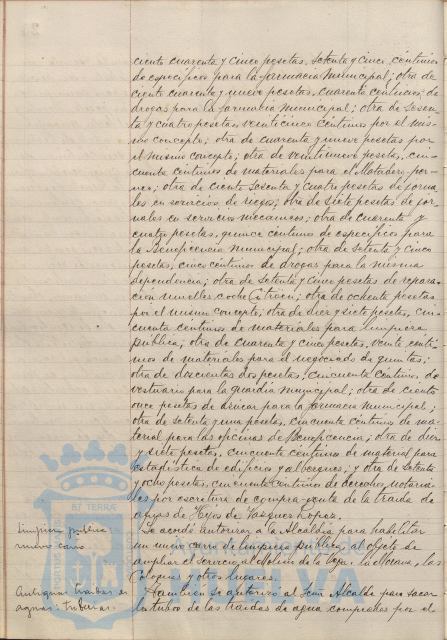 ciento cuarenta y cinco pesetas, setenta y cinco céntimos
de específicos para la farmacia municipal; otra de
ciento cuarenta y nueve pesetas, cuarenta céntimos, de
drogas para la farmacia municipal; otra de sesen-
ta y cuatro pesetas veinticinco céntimos por el mis-
mo concepto; otra de cuarenta y nueve pesetas por
el mismo concepto; otra de veintinueve pesetas, cin-
cuenta céntimos de materiales para el Matadero,
otra de ciento sesenta y cuatro pesetas de jorna-
les en servicios de riegos; otra de siete pesetas de jor-
nales en servicios mecánicos; otra de cuarenta y
cuatro pesetas, quince céntimos de específicos para
la Beneficencia municipal; otra de setenta y cinco
pesetas, cinco céntimos de drogas para la misma
dependencia; otra de setenta y cinco pesetas de repara-
ción muelles coche Citroën; otra de ochenta pesetas
por el mismo concepto; otra de diez y siete pesetas, cin-
cuenta céntimos de materiales para limpieza
pública; otra de cuarenta y cinco pesetas, veinte cénti-
mos de materiales para el negociado de quintas;
otra de doscientas dos pesetas, cincuenta céntimos, de
vestuario para la guardia municipal; otra de ciento
once pesetas de azúcar para la farmacia municipal;
otra de setenta y una pesetas, cincuenta céntimos de ma-
terial para las oficinas de Beneficencia; otra de diez
y siete pesetas, cincuenta céntimos de material para
estadística de edificios y albergues; y otra de setenta
y ocho pesetas, cincuenta céntimos de derechos notaria-
les por escritura de compra-venta de la traida de
aguas de Hijos de Vazquez Lopez.
Limpieza pública
nuevo carro
Se acordó autorizar a la Alcaldía para habilitar
un nuevo carro de limpieza pública, al objeto de
ampliar el servicio al Molino de la Vega, la
Colonias y otros lugares.
Antiguas traidas de
aguas. Tuberias
Tambien se autorizó al Señor Alcalde para sacar
los tubos de las traidas de agua compradas por el
PORTUS
ET TERRAE
Ayuntamiento de
HUELVA